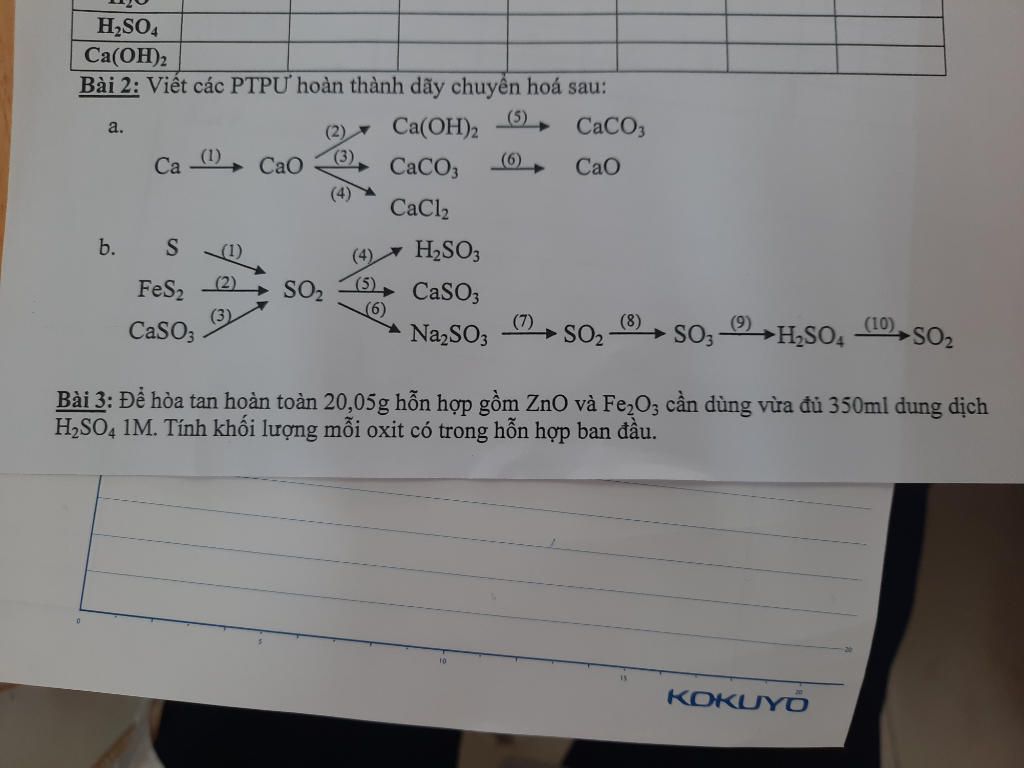 H₂O
H₂SO₄
Ca(OH)₂
Bài 2: Viết các PTPƯ hoàn thành dãy chuyển hoá sau:
a.
(2) Ca(OH)₂ (5) CaCO₃
Ca (1) CaO (3) CaCO₃ (6) CaO
(4) CaCl₂
b. S (1) (4) H₂SO₃
FeS₂ (2) SO₂ (5) CaSO₃
CaSO₃ (3) (6) Na₂SO₃ (7) SO₂ (8) SO₃ (9) H₂SO₄ (10) SO₂
Bài 3: Để hòa tan hoàn toàn 20,05g hỗn hợp gồm ZnO và Fe₂O₃ cần dùng vừa đủ 350ml dung dịch
H₂SO₄ 1M. Tính khối lượng mỗi oxit có trong hỗn hợp ban đầu.
20
0 5 10 15 20
KOKUYO